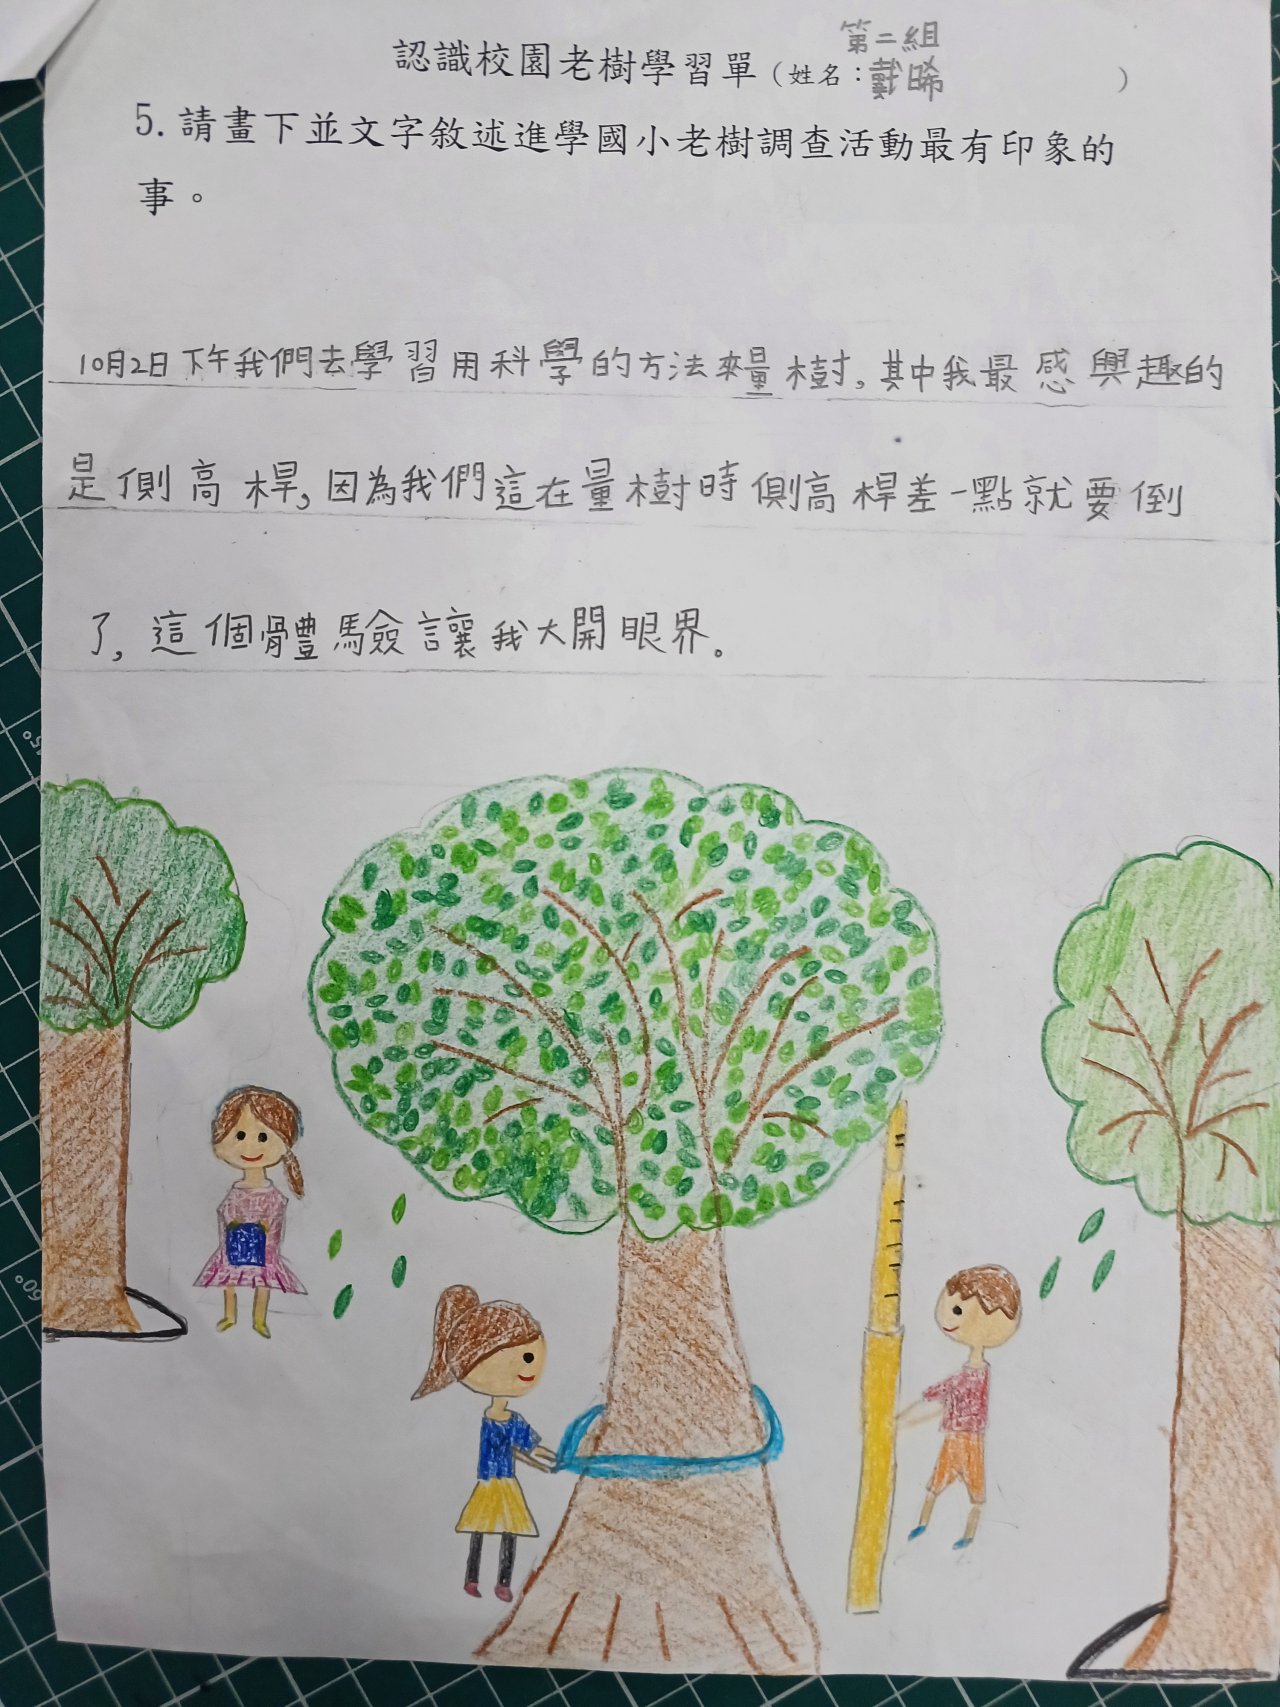 第二組
認識校園老樹學習單(姓名：戴晞 )
5.請畫下並文字敘述進學國小老樹調查活動最有印象的
事。
10月2日下午我們去學習用科學的方法來量樹,其中我最感興趣的
是側高桿,因為我們這在量樹時側高桿差一點就要倒
了,這個體驗讓我大開眼界。